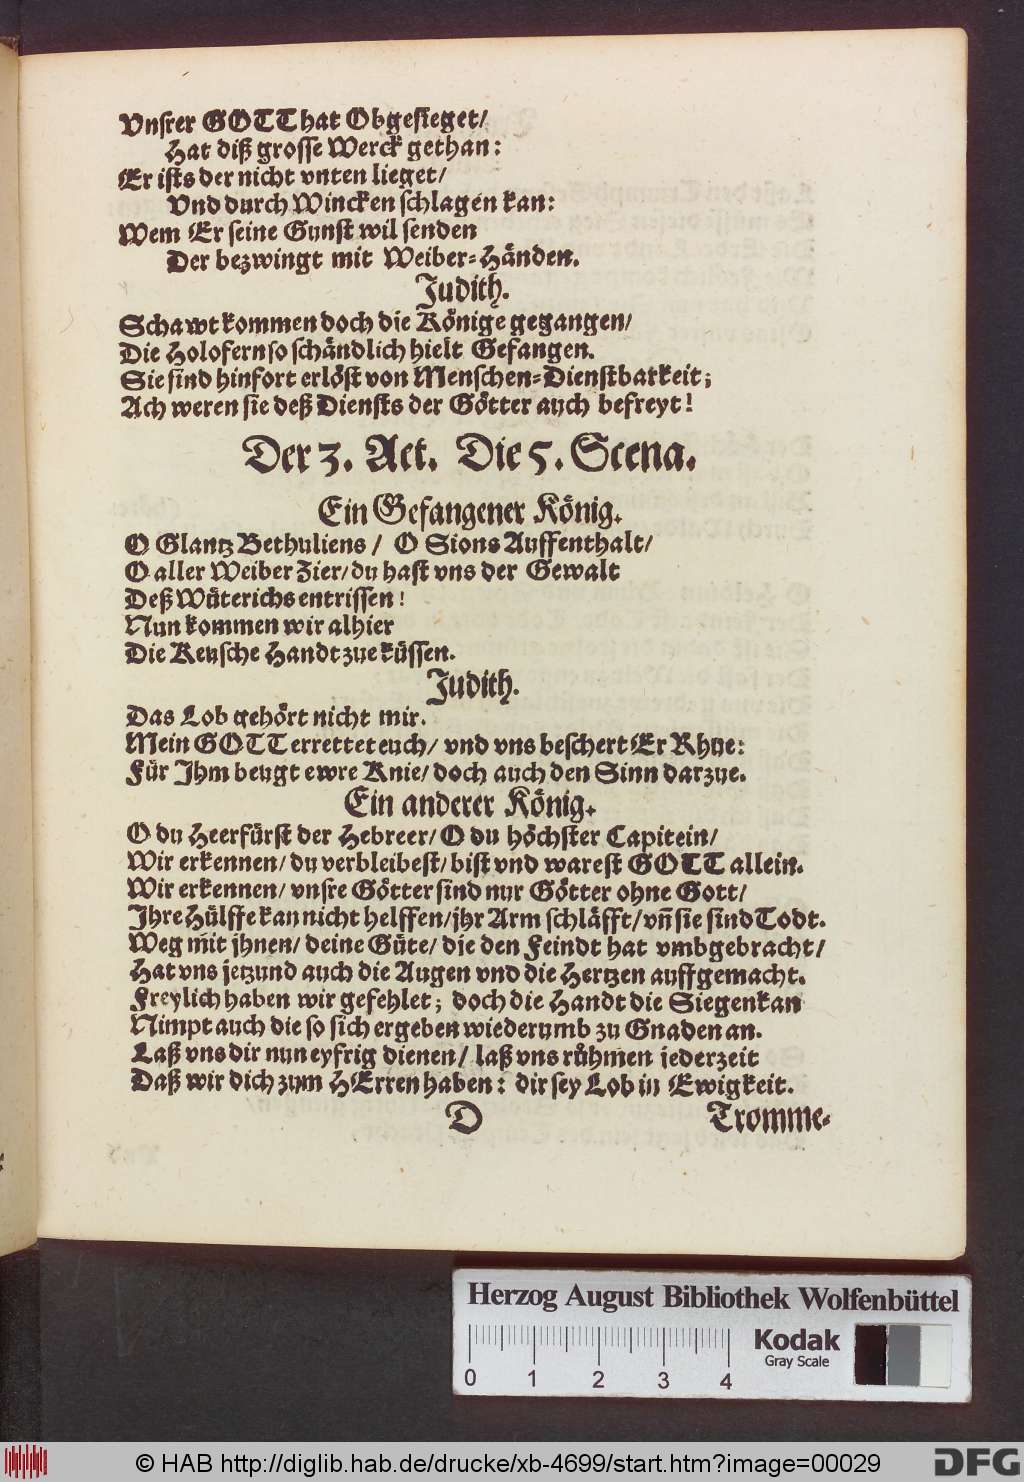 Vnsrer GOTT hat Obgesieget/
Hat diß grosse Werck gethan:
Er ists der nicht vnten lieget/
Vnd durch Wincken schlagen kan:
Wem Er seine Gunst wil senden
Der bezwingt mit Weiber-Händen.
Judith.
Schawt kommen doch die Könige gegangen/
Die Holofern so schändlich hielt Gefangen.
Sie sind hinfort erlöst von Menschen-Dienstbarkeit;
Ach weren sie deß Diensts der Götter auch befreyt!
Der 3. Act. Die 5. Scena.
Ein Gefangener König.
O Glantz Bethuliens / O Sions Auffenthalt/
O aller Weiber Zier/ du hast vns der Gewalt
Deß Wüterichs entrissen!
Nun kommen wir alhier
Die Keusche Handt zue küssen.
Judith.
Das Lob gehört nicht mir.
Mein GOTT errettet euch/ vnd vns beschert Er Rhue:
Für Ihm beugt ewre Knie/ doch auch den Sinn darzue.
Ein anderer König.
O du Heerfürst der Hebreer/ O du höchster Capitein/
Wir erkennen/ du verbleibest/ bist vnd warest GOTT allein.
Wir erkennen/ vnsre Götter sind nur Götter ohne Gott/
Ihre Hülffe kan nicht helffen/ jhr Arm schläfft/ vn̄ sie sind Todt.
Weg mit jhnen/ deine Güte/ die den Feindt hat vmbgebracht/
Hat vns jetzund auch die Augen vnd die Hertzen auffgemacht.
Freylich haben wir gefehlet; doch die Handt die Siegen kan
Nimpt auch die so sich ergeben wiederumb zu Gnaden an.
Laß vns dir nun eyfrig dienen/ laß vns rühmen jederzeit
Daß wir dich zum HErren haben: dir sey Lob in Ewigkeit.
D Tromme-
Herzog August Bibliothek Wolfenbüttel
Kodak
Gray Scale
0 1 2 3 4
© HAB http://diglib.hab.de/drucke/xb-4699/start.htm?image=00029
DFG